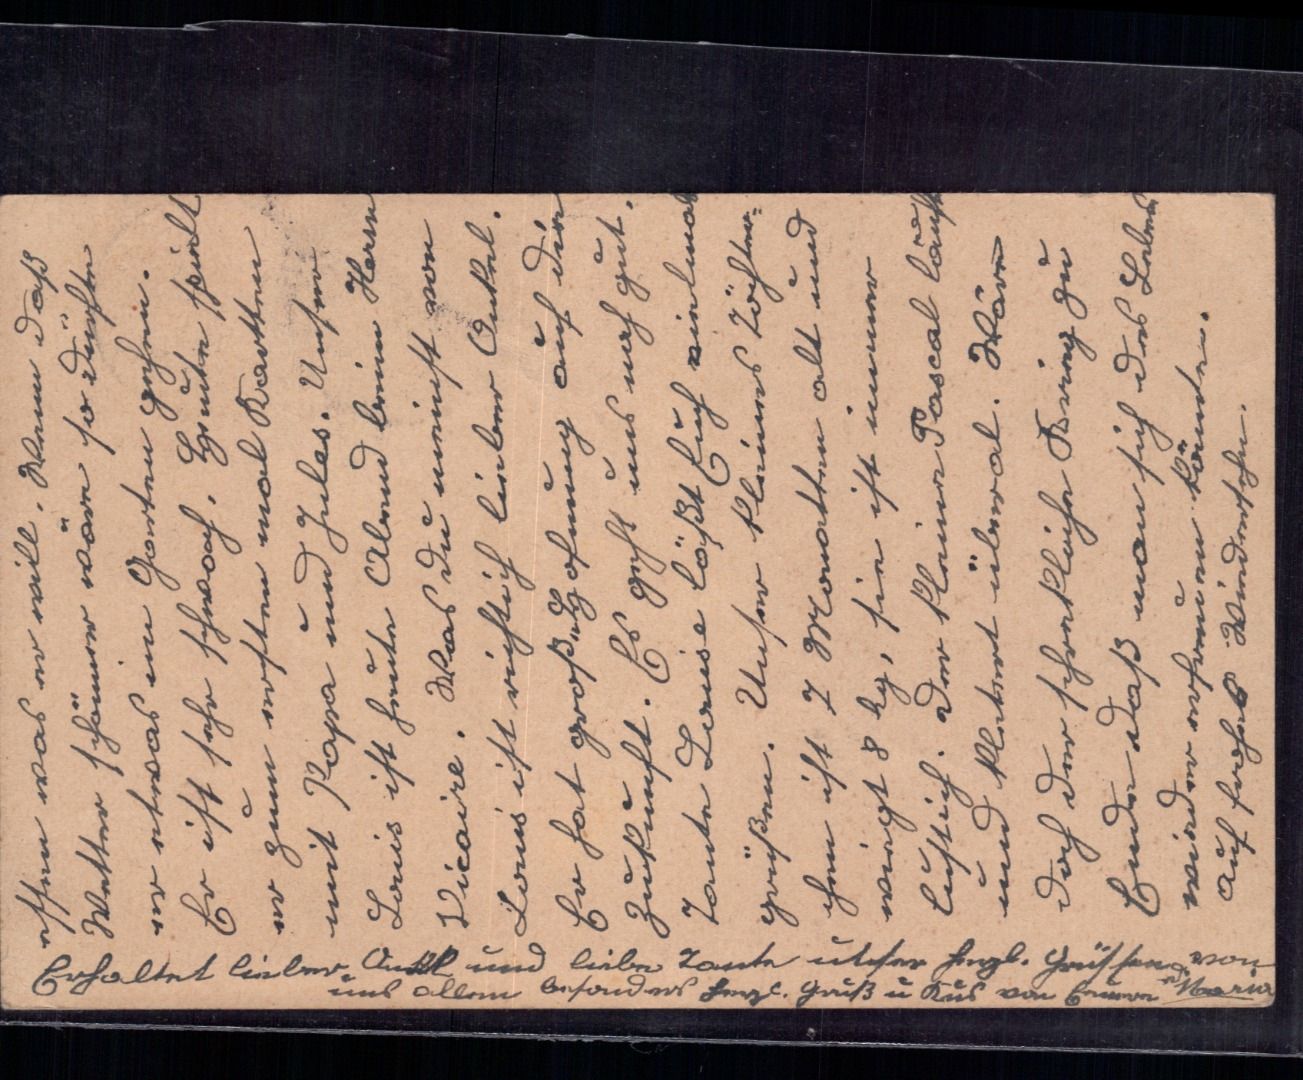 essen was er will. Wenn daß
Wetter schöner wäre so dürfte
er etwas im Garten gehen.
Er ist sehr schwach. Heute spielt
er zum ersten mal Kartten
mit Papa und Jules. Unser
Louis ist heute Abend beim Herrn
Vicaire. Was du meinst von
Louis ist richtig lieber Onkel.
Er hat große Hofnung auf die
Zukunft. Es geht uns noch gut.
Tante Louise läßt Euch vielmals
grüßen. Unser kleines Töchter-
chen ist 7 Monatten alt und
wiegt 8 kg, sie ist immer
lustich. Der kleine Pascal läuft
und kletert überal. Wäre
doch der schrekliche Krieg zu
Ende daß man sich des Lebens
wieder erfreuen könnte.
Auf frohes Wiedersehn.
Erhaltet lieber Onkel und liebe Tante unser herzl. Grüssen von
uns allem besonders herzl. Gruß u Kus von Eurer Maria